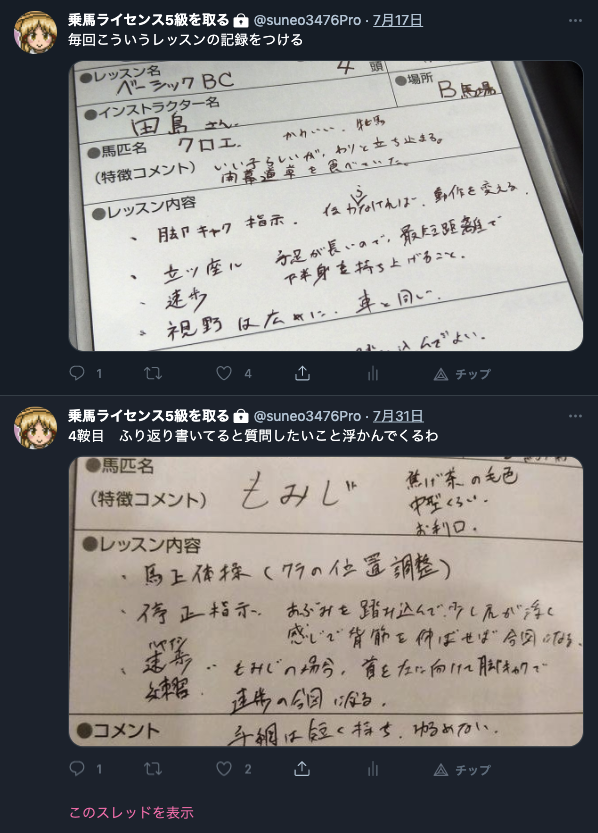 乗馬ライセンス5級を取る @suneo3476Pro · 7月17日
毎回こういうレッスンの記録をつける
●レッスン名
ベーシックBC
4 頭
●場所
B馬場
●インストラクター名
田島 さん
●馬匹名 クロエ
かわいい、牝馬
(特徴コメント) いい子らしいが、わりと立ち止まる。
開幕道草を食べていた。
●レッスン内容
、脚 キャク 指示。 伝わなければ、動作を変える
、立ツ座ル 手足が長いので、最短距離で
下半身を持ち上げること。
・速歩
・視野は広めに、車と同じ。
込んでよい。
1 4 チップ
乗馬ライセンス5級を取る @suneo3476Pro · 7月31日
4鞍目 ふり返り書いてると質問したいこと浮かんでくるわ
●馬匹名
(特徴コメント) もみじ
焦げ茶の毛色
中型くらい、
お利口。
●レッスン内容
、馬上体操(クラの位置調整)
・停止指示… あぶみを踏み込んで、少し尻が浮く
感じで背筋を伸ばせば合図になる。
、速歩 … もみじの場合、首を左に向けて脚キャクで
練習。 速歩の合図になる。
●コメント 手綱は短く持ち、ゆるめない。
1 2 チップ
このスレッドを表示